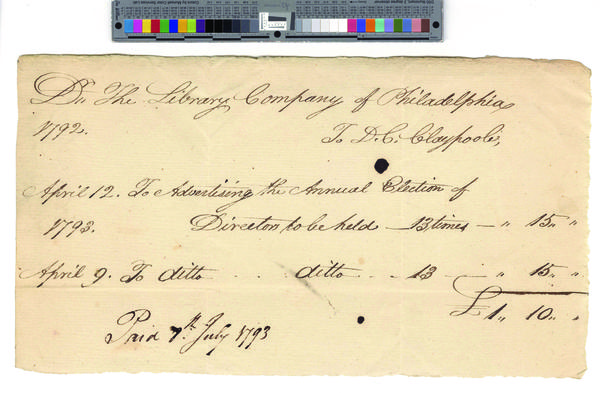 Dr. The Library Company of Philadelphia,
1792. To D. C. Claypoole,
April 12. To Advertising the Annual Election of
1793. Directors to be held - 13 times - " 15 " "
April 9. To ditto . . ditto . . - 13 - " 15 " "
£ 1 " 10 " "
Paid 7th July 1793